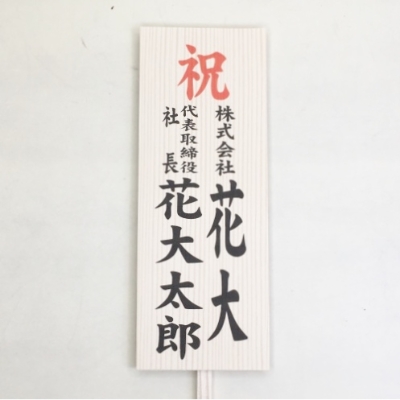 祝
株式会社 花大
代表取締役
社長
花大太郎